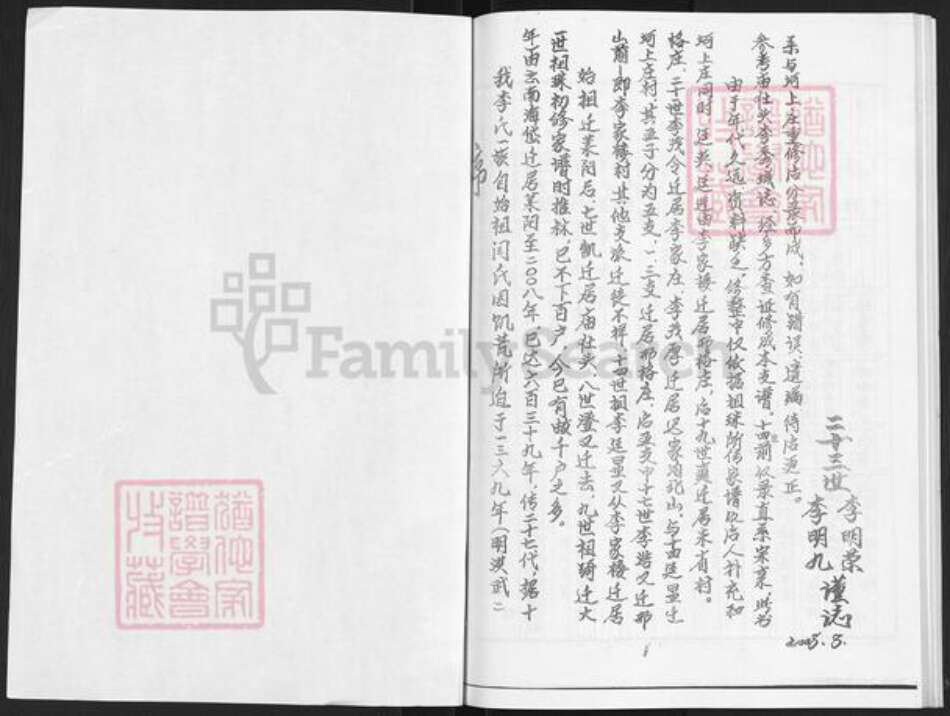 序
我李氏一族自始祖闫氏因饥荒所迫于一三六九年(明洪武二
年由云南海岱迁居莱阳至二〇〇八年已达六百三十九年,传二十七代,据十
一世祖珠初修家谱时推林,已不下百户,今已有数千户之多。
始祖迁莱阳后,七世凯迁居庙社头,八世澄又迁去,九世祖琦迁大
山前—即李家疃村其他支派迁徙不祥,十四世祖李廷显又从李家疃迁居
河上庄村,其五子分为五支,一三支迁居邢格庄,后五支中十七世李浩又迁邢
格庄,二十世李茂令迁居李家庄,李茂厚迁居迟家沟北山,与李廷显迁
河上庄同时,廷英、廷进由李家疃迁居邢格庄,后十九世爽迁居朱省村。
由于年代久远,资料缺乏,修整中仅依据祖珠所传家谱以后人补充和
参考庙社头李秀珹志,经多方查证修成本支谱。十四世前仅录直系宗亲,此为
系与河上庄重修后分录而成,如有错误、遗漏待后更正。
二十三世
李明荣
李明九
谨志
2008.8.
猶他家
譜學會
收藏
猶他家
譜學會
收藏
FamilySearch